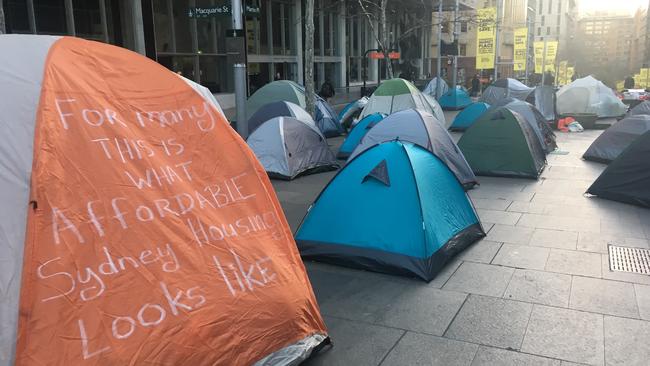 Macquarie St
For many
THIS IS
WHAT
AFFORDABLE
Sydney Housing
Looks like